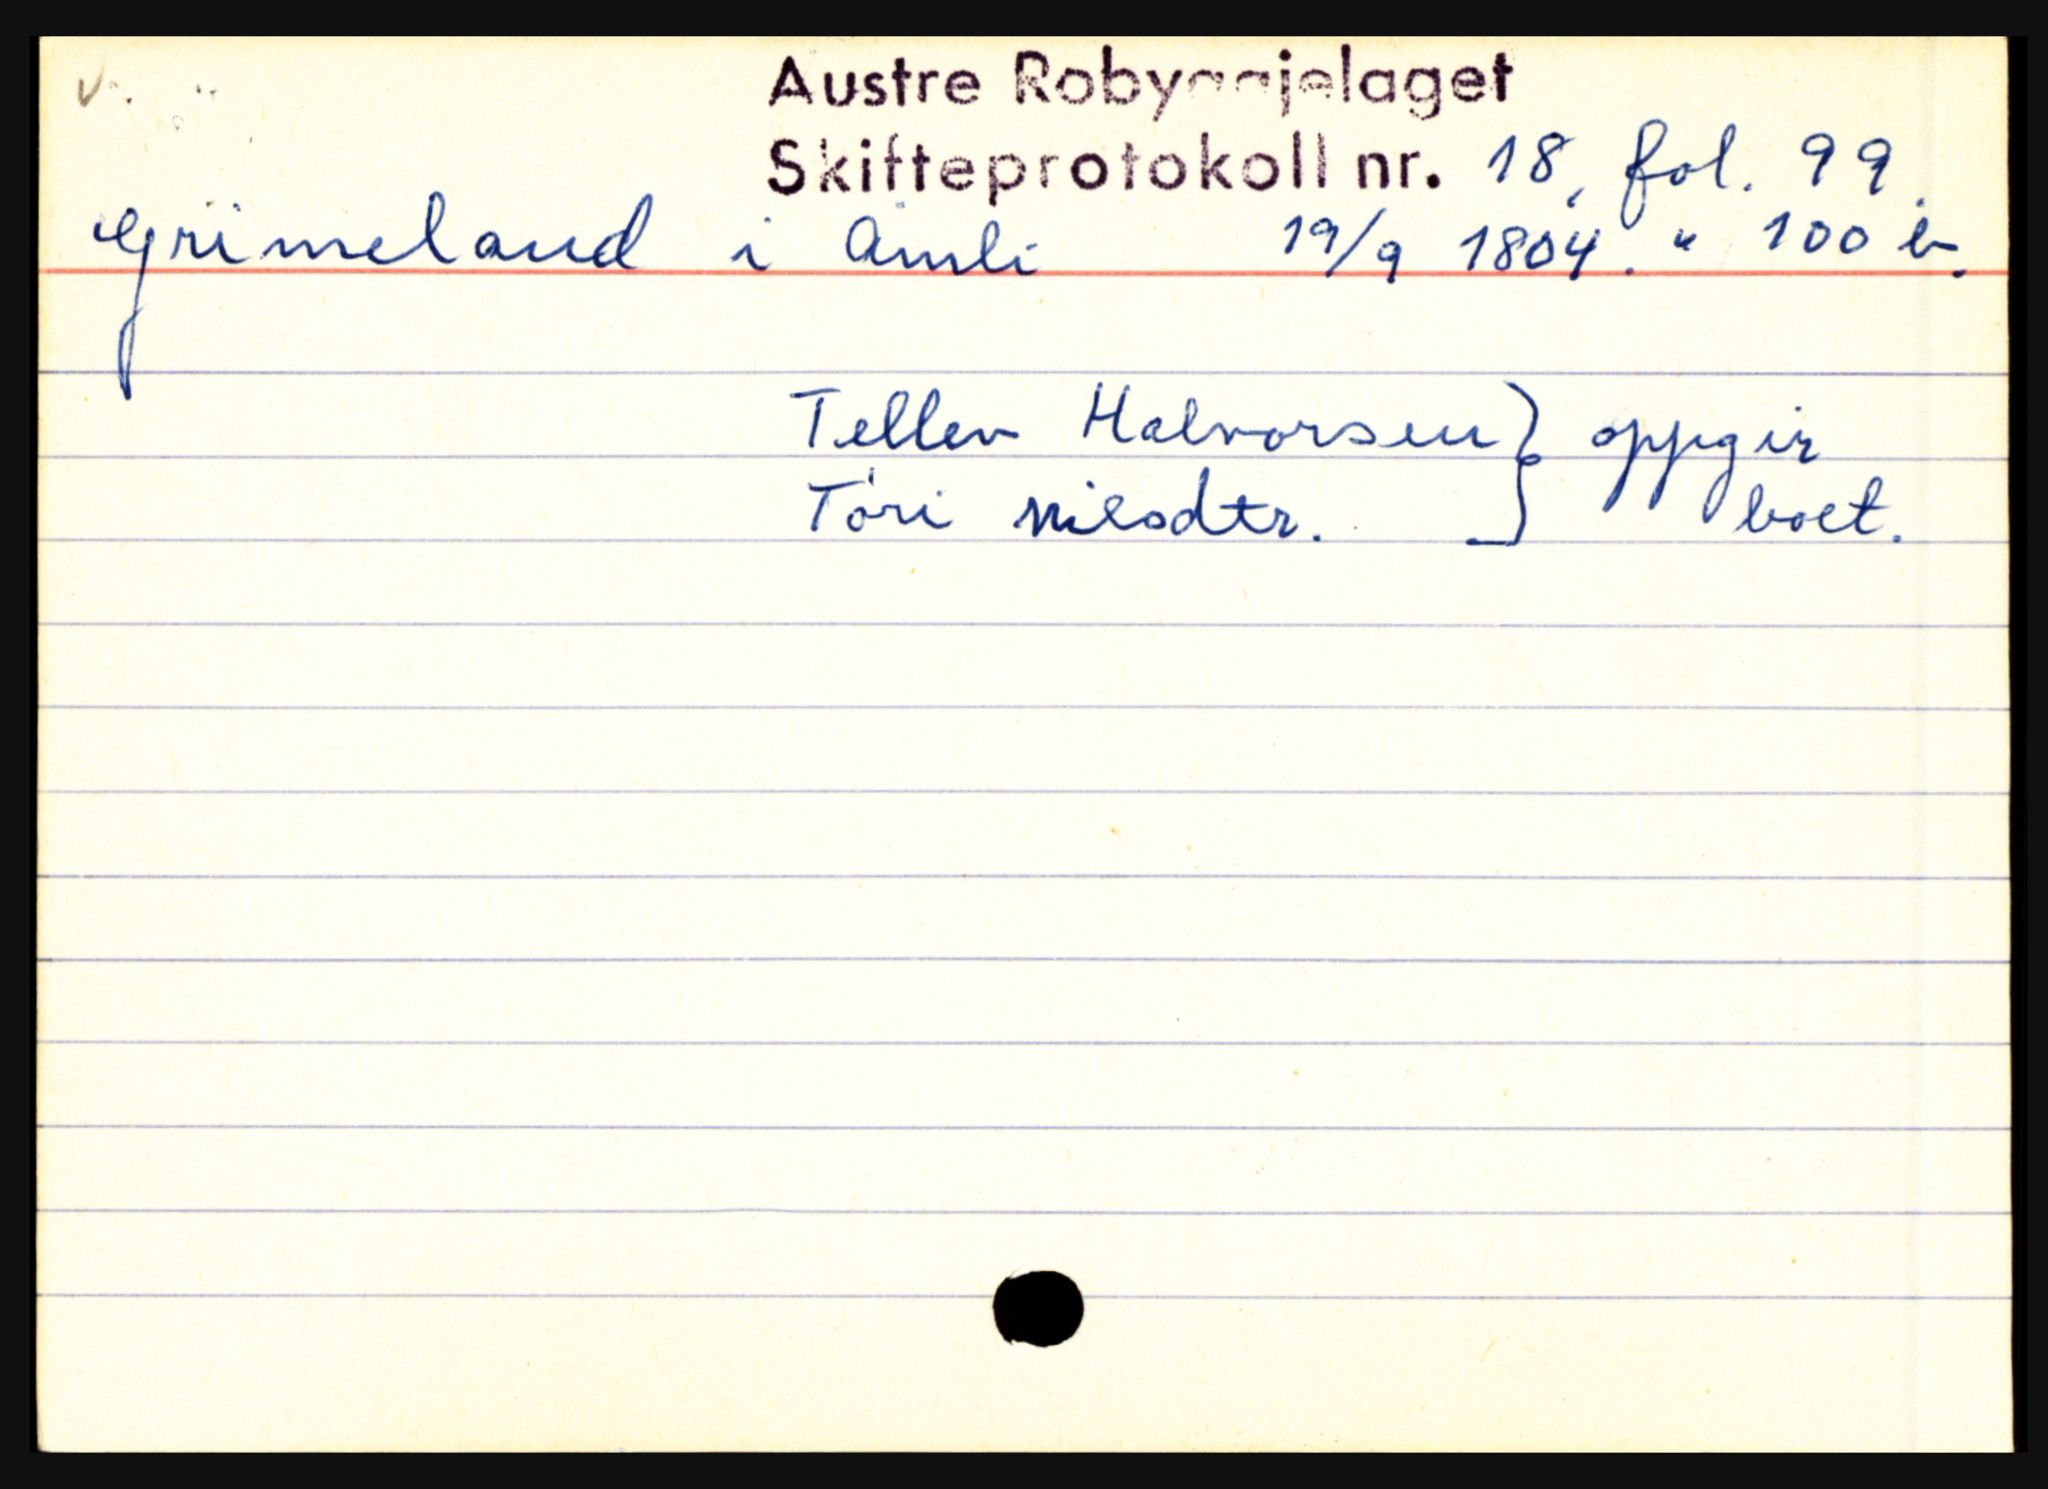 Austre Robyggjelaget
Skifteprotokoll nr. 18, fol. 99.
Grimeland i Åmli 19/9 1804. " 100 b.
Tellev Halvorsen } oppgir
Tóri Nilsdtr. } boet.